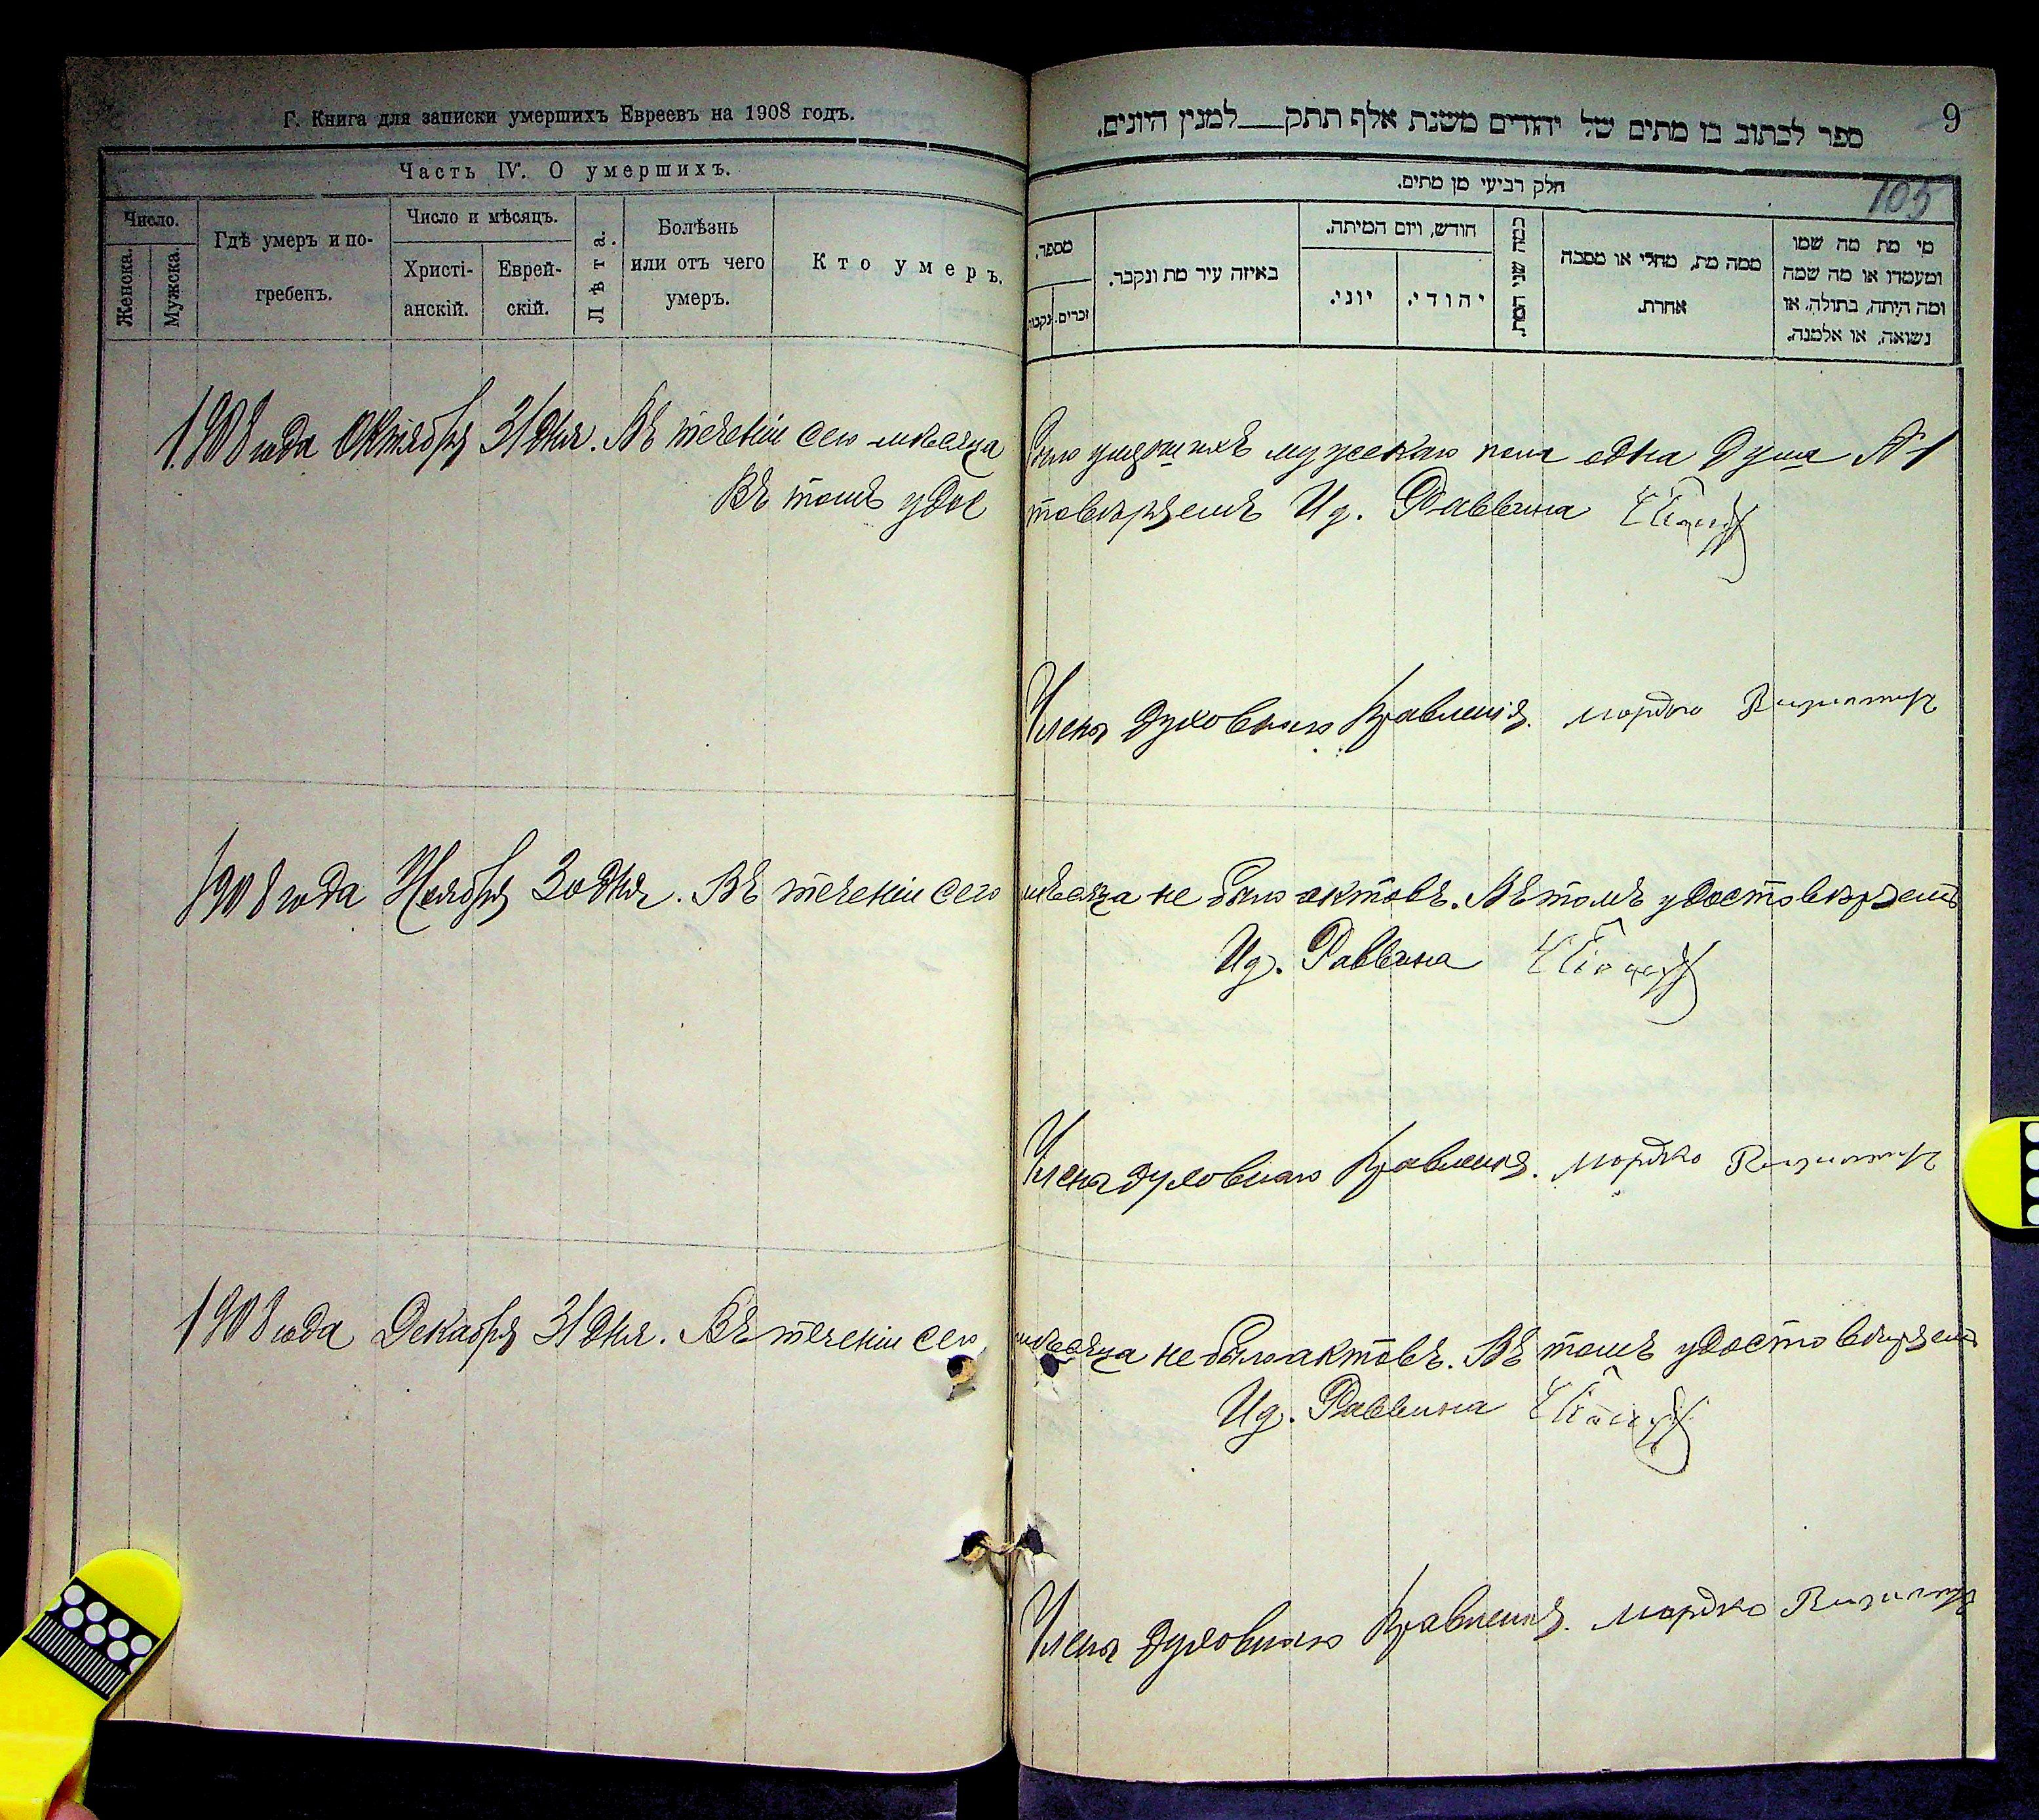 Г. Книга для записки умершихъ Евреевъ на 1908 годъ.
Часть IV. О умершихъ.
Число.
Женска.
Мужска.
Гдѣ умеръ и по-
гребенъ.
Число и мѣсяцъ.
Христі-
анскій.
Еврей-
скій.
Лѣта.
Болѣзнь
или отъ чего
умеръ.
Кто умеръ.
9
ספר לכתוב בו מתים של יהודים משנת אלף תתק___למנין היונים.
105
חלק רביעי מן מתים.
מספר.
זכרים.
נקבות
באיזה עיר מת ונקבר.
חודש, ויום המיתה.
יוני.
יהודי.
כמה שני המת.
ממה מת, מחלי או מסבה
אחרת.
מי מת מה שמו
ומעמדו או מה שמה
ומה היתה, בתולה, או
נשואה, או אלמנה.
1908 года Октября 31 дня. Въ теченіи сего мѣсяца было умершихъ мужскаго пола одна душа № 1
Въ томъ удостовѣряемъ Ид. Раввина
Члена духовнаго Правленія. Мордко
1908 года Ноября 30 дня. Въ теченіи сего мѣсяца не было актовъ. Въ томъ удостовѣряемъ
Ид. Раввина
Члена духовнаго Правленія. Мордко
1908 года Декабря 31 дня. Въ теченіи сего мѣсяца не было актовъ. Въ томъ удостовѣряемъ
Ид. Раввина
Члена духовнаго Правленія. Мордко